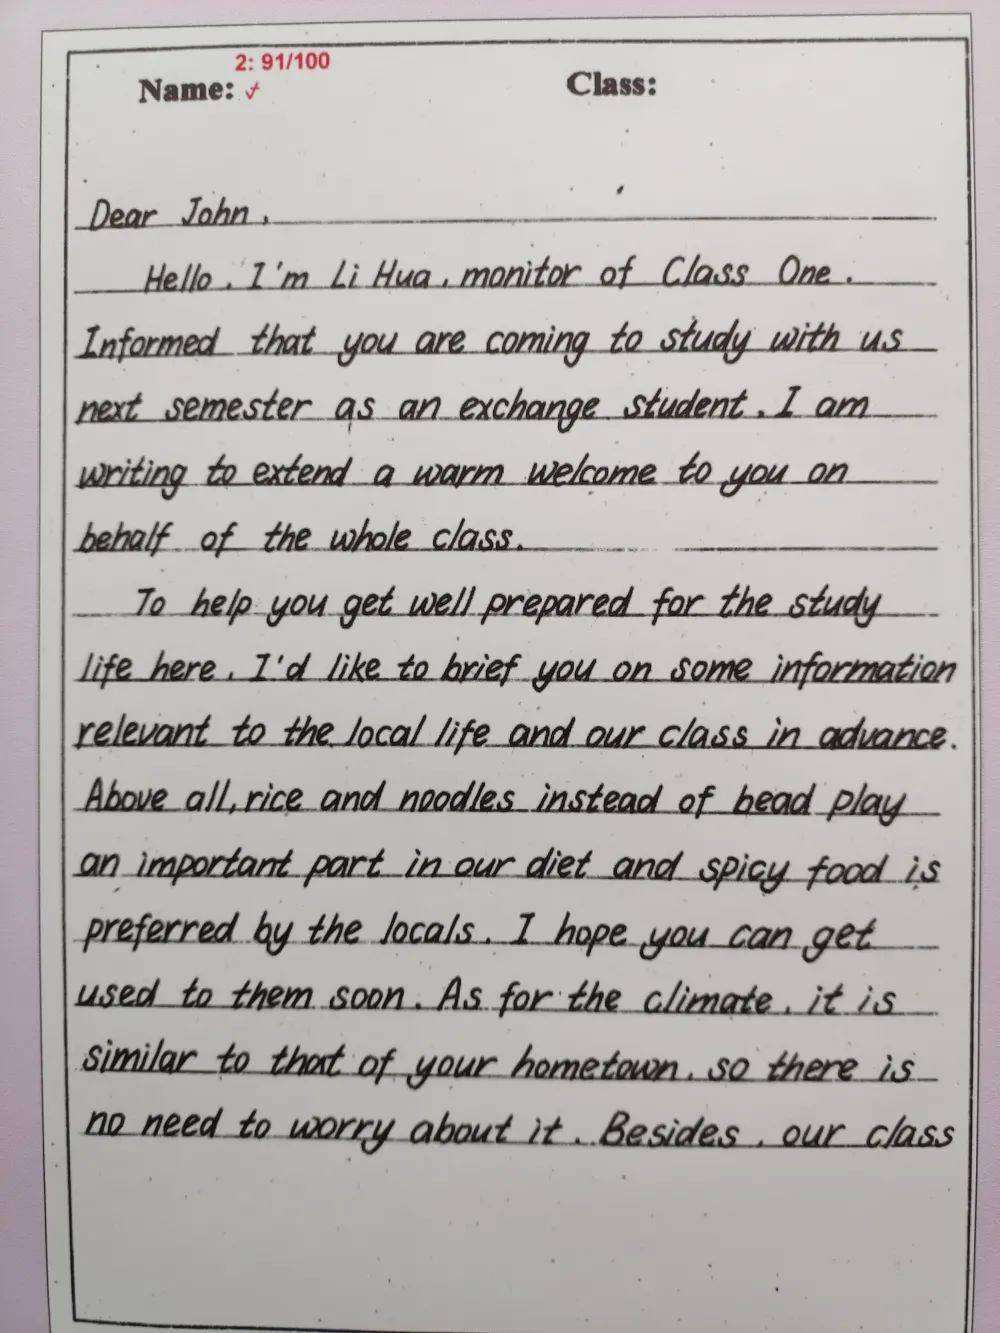 2: 91/100
Name: Class:
Dear John,
Hello, I'm Li Hua, monitor of Class One.
Informed that you are coming to study with us
next semester as an exchange student, I am
writing to extend a warm welcome to you on
behalf of the whole class.
To help you get well prepared for the study
life here, I'd like to brief you on some information
relevant to the local life and our class in advance.
Above all, rice and noodles instead of bead play
an important part in our diet and spicy food is
preferred by the locals. I hope you can get
used to them soon. As for the climate, it is
similar to that of your hometown, so there is
no need to worry about it. Besides, our class